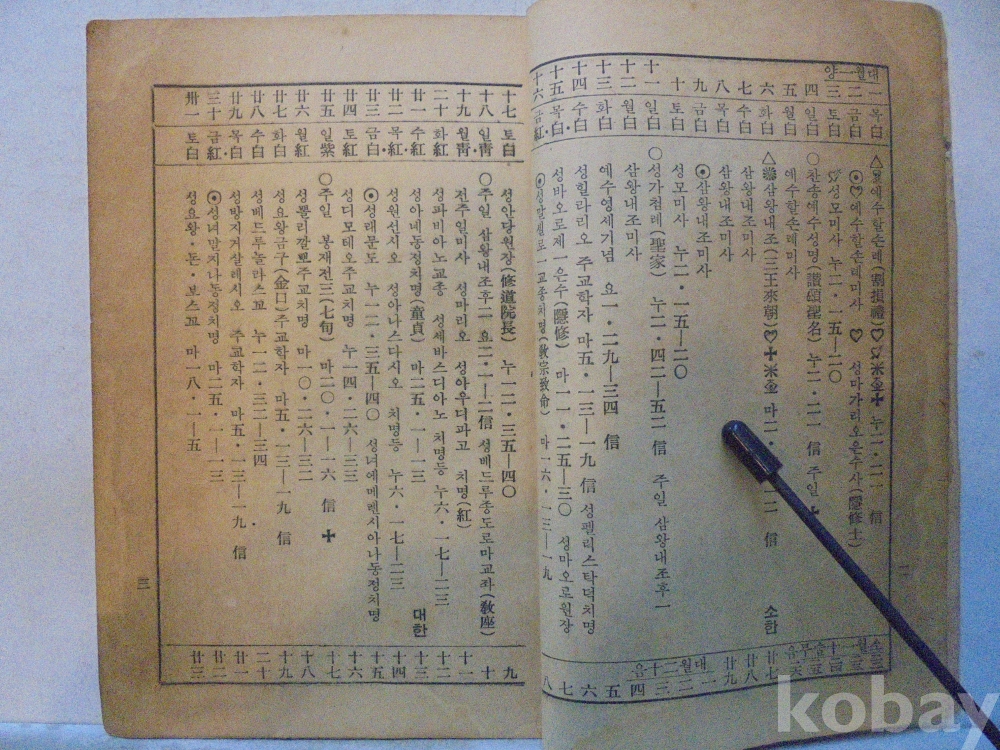 양一월대
一 목白 △ 예수할손례(割損禮) 누二·二一 信
二 금白 예수할손례미사 ♡ 성마가리오은수사(隱修士)
三 토白 성모미사 누二·一五—二〇
四 일白 ○찬송예수성명(讚頌聖名) 누二·二一 信 주일 ✚
五 월白 예수할손례미사
六 화白 △삼왕내조(三王來朝)♡✚米金 마二·一 一二 信 소한
七 수白 삼왕내조미사
八 목白 삼왕내조미사
九 금白 ⦿삼왕내조미사
十 토白 성모미사 누二·一五—二〇
十一 일白 ○성가첨례(聖家) 누二·四二—五二 信 주일 삼왕내조후一
十二 월白 삼왕내조미사
十三 화白 예수영세기념 요一·二九—三四 信
十四 수白 성힐라리오 주교학자 마五·一三—一九 信 성펠리스탁덕치명
十五 목白 성바오로제一은수(隱修) 마一一·二五—三〇 성마오로원장
十六 금紅 ⦿성말셀로一교종치명(敎宗致命) 마一六·一三—一九
음十二월대
一 二 三 四 五 六 七 八
二
十七 토白 성안당원장(修道院長) 누一二·三五—四〇 九
十八 일靑 ○주일 삼왕내조후二 요二·一—一一信 성베드루종도로마교좌(敎座) 十
十九 월靑 전주일미사 성마리오 성야우디파고 치명(紅) 十一
二十 화紅 성파비아노교종 성세바스디아노 치명등 누六·一七—二三 十二
廿一 수紅 성아네동정치명(童貞) 마二五·一—一三 대한 十三
廿二 목紅 성원선시오 성아나스다시오 치명등 누六·一七—二三 十四
廿三 금白 ⦿성래문도 누一二·三五—四〇 성녀에메렌시아나동정치명 十五
廿四 토紅 성디모테오주교치명 누一四·二六—三三 十六
廿五 일紫 ○주일 봉재전三(七旬) 마二〇·一—一六 信 ✚ 十七
廿六 월紅 성뽈리갈뽀주교치명 마一〇·二六—三二 十八
廿七 화白 성요왕금구(金口)주교학자 마五·一三—一九 信 十九
廿八 수白 성베드루놀라스꼬 누一二·三二—三四 二十
廿九 목白 성방지거살레시오 주교학자 마五·一三—一九 信 廿一
三十 금紅 ⦿성녀말지나동정치명 마二五·一—一三 廿二
卅一 토白 성요왕·돈·보스꼬 마一八·一—五 廿三
三
kobay